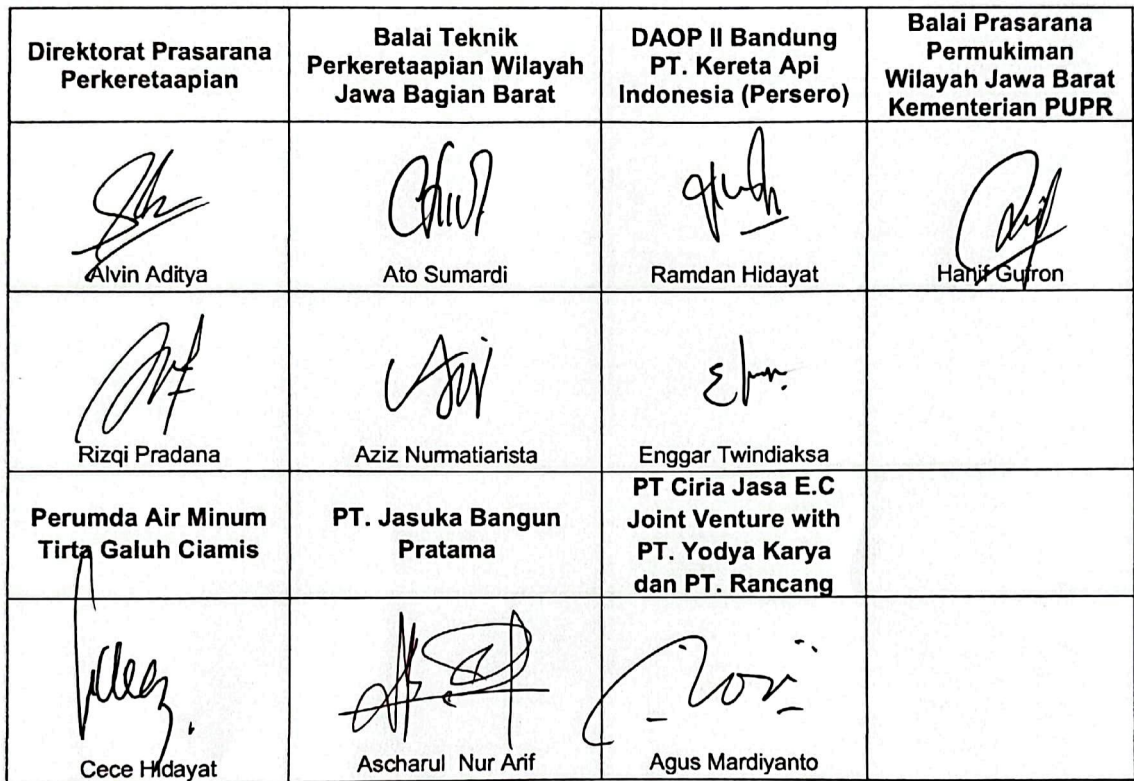 Direktorat Prasarana
Perkeretaapian
Balai Teknik
Perkeretaapian Wilayah
Jawa Bagian Barat
DAOP II Bandung
PT. Kereta Api
Indonesia (Persero)
Balai Prasarana
Permukiman
Wilayah Jawa Barat
Kementerian PUPR
Alvin Aditya
Ato Sumardi
Ramdan Hidayat
Hanif Gufron
Rizqi Pradana
Aziz Nurmatiarista
Enggar Twindiaksa
Perumda Air Minum
Tirta Galuh Ciamis
PT. Jasuka Bangun
Pratama
PT Ciria Jasa E.C
Joint Venture with
PT. Yodya Karya
dan PT. Rancang
Cece Hidayat
Ascharul Nur Arif
Agus Mardiyanto